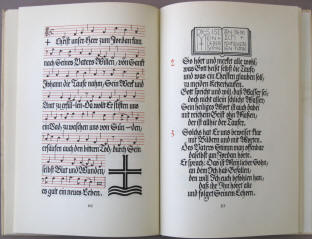 Christ unser Herr zum Jordan kam
nach Seines Vaters Willen, von Sankt
Johann die Taufe nahm, Sein Werk und
Amt zu erfül-len. Da wollt Er stiften uns
ein Bad, zu waschen uns von Sün-den,
ersäufen auch den bittern Tod, durch Sein
selbst Blut und Wunden,
es gult ein neues Leben.
2 So hört und merket alle wohl,
was Gott heißt selbst die Taufe
und was ein Christen glauben soll,
zu meiden Ketzerhaufen.
Gott spricht und will, daß Wasser sei;
doch nicht allein schlicht Wasser,
Sein heiliges Wort ist auch dabei
mit reichem Geist ohn Maßen;
der ist allhie der Taufer.
3 Solchs hat Er uns beweiset klar
mit Bildern und mit Worten.
Des Vaters Stimm man offenbar
daselbst am Jordan hörte.
Er sprach: Das ist Mein lieber Sohn,
an dem Ich hab Gefallen,
den will Ich euch befohlen han,
daß ihr Ihn höret alle
und folget Seinem Lehren.